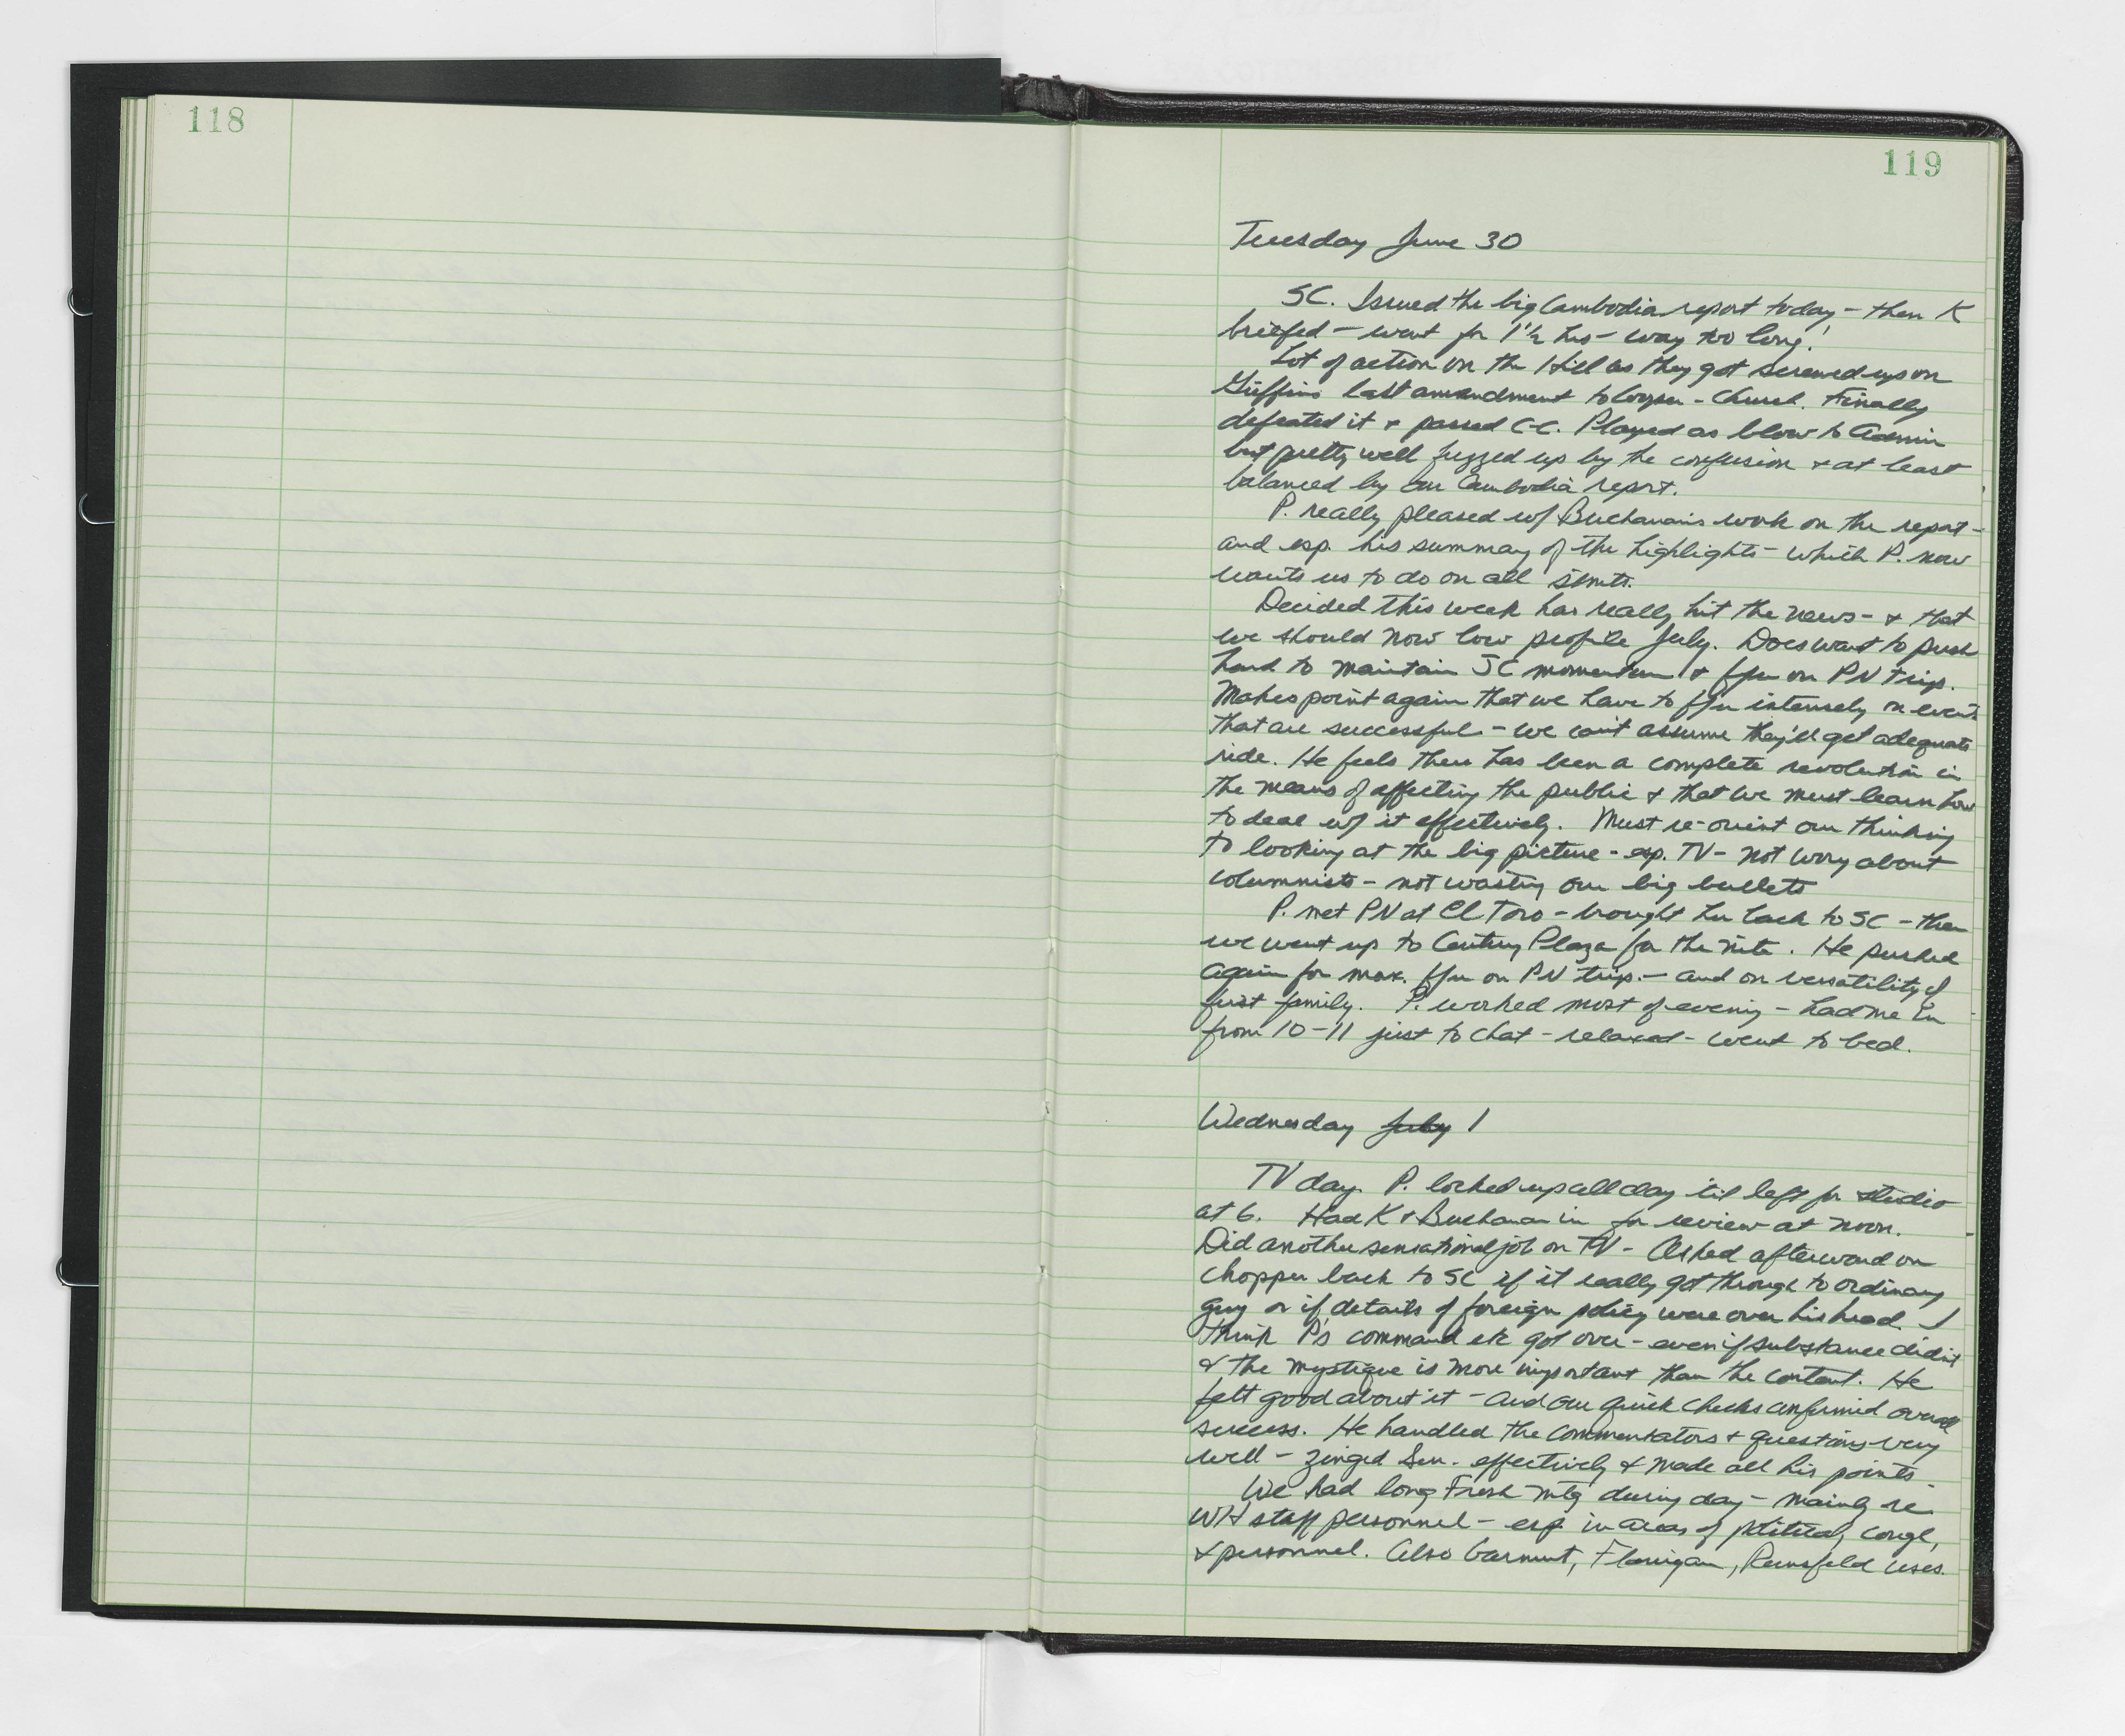 118
119
Tuesday June 30
SC. Issued the big Cambodia report today - then K
briefed - went for 1½ hrs - way too long!
Lot of action on the Hill as they got screwed up on
Griffin's last amendment to Cooper - Church. Finally
defeated it & passed C-C. Played as blow to Admin
but pretty well fuzzed up by the confusion & at least
balanced by our Cambodia report.
P. really pleased w/ Buchanan's work on the report -
and esp. his summary of the highlights - which P. now
wants us to do on all stmts.
Decided this week has really hit the news - & that
we should now low profile July. Does want to push
hard to maintain SC momentum & ffu on PN trip.
Makes point again that we have to ffu intensely on events
that are successful - we can't assume they'll get adequate
ride. He feels there has been a complete revolution in
the means of affecting the public & that we must learn how
to deal w/ it effectively. Must re-orient our thinking
to looking at the big picture - esp. TV - not worry about
columnists - not wasting our big bullets
P. met PN at El Toro - brought her back to SC - then
we went up to Century Plaza for the nite. He pushed
again for max. ffu on PN trip. - and on versatility of
first family. P. worked most of evening - had me in
from 10-11 just to chat - relaxed - went to bed.
Wednesday July 1
TV day. P. locked up all day 'til left for studio
at 6. Had K & Buchanan in for review at noon.
Did another sensational job on TV - Asked afterward on
chopper back to SC if it really got through to ordinary
guy or if details of foreign policy were over his head. I
think P's command etc got over - even if substance didn't
& the mystique is more important than the content. He
felt good about it - and our quick checks confirmed overall
success. He handled the commentators & questions very
well - zinged Sen. effectively & made all his points
We had long Fresh mtg during day - mainly re
WH staff personnel - esp in areas of political, congl,
& personnel. Also Garment, Flanigan, Rumsfeld uses.